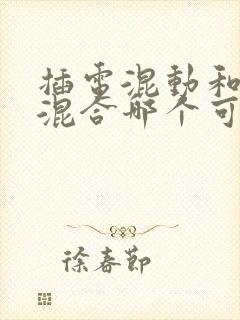 插电混動和
混合哪个可
徐春節